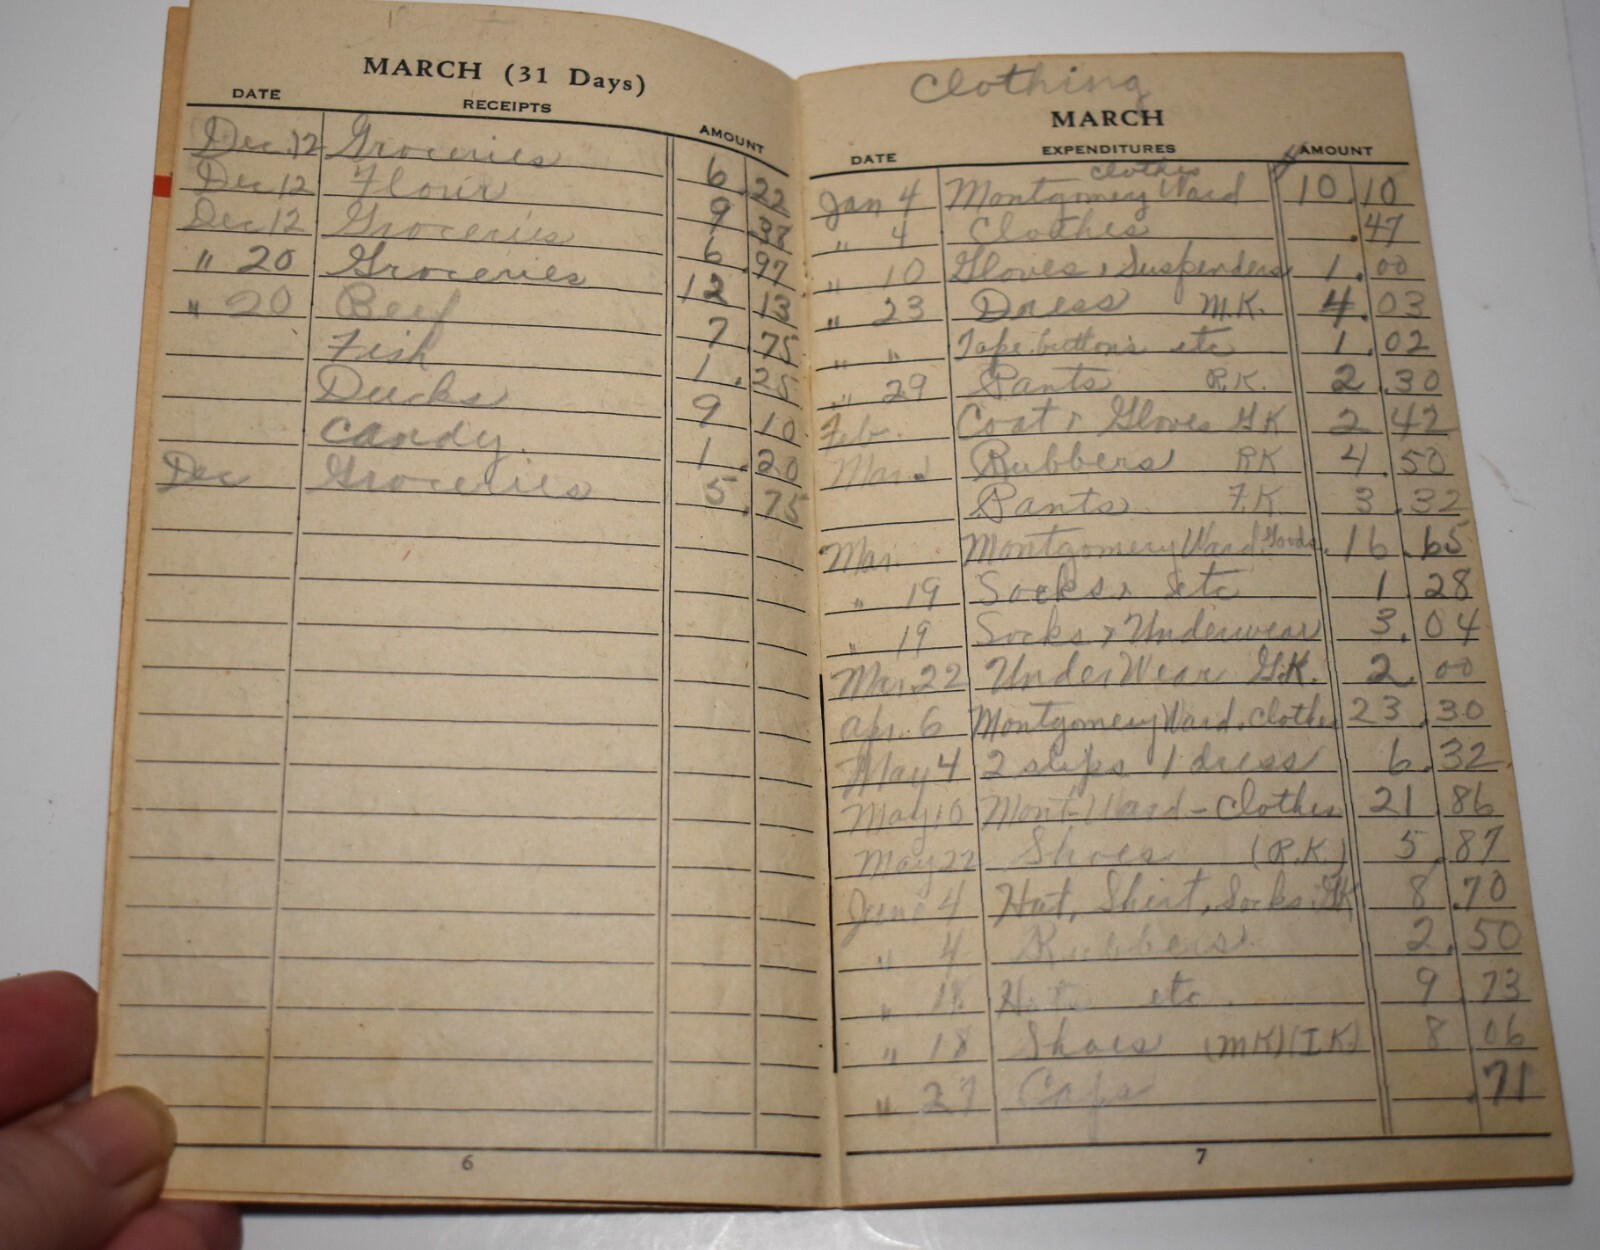 MARCH (31 Days)
DATE RECEIPTS AMOUNT
Dec. 12 Groceries 6.22
Dec 12 Flour 9.38
Dec 12 Groceries 6.97
" 20 Groceries 12 13
" 20 Beef 7.75
Fish 1.25
Ducks 9 10
Candy 1.20
Dec Groceries 5.75
6
Clothing
MARCH
DATE EXPENDITURES AMOUNT
clothes
Jan 4 Montgomery Ward 10.10
" 4 Clothes .47
" 10 Gloves & Suspenders 1.00
" 23 Dress M.K. 4.03
" " Tape, buttons etc 1.02
" 29 Pants R.K. 2.30
Feb. Coat & Gloves G K 2 42
Mar. Rubbers RK 4.50
Pants F.K. 3.32
Mar. Montgomery Ward Goods 16.65
" 19 Socks, etc 1.28
" 19 Socks & Underwear 3.04
Mar. 22 UnderWear G.K. 2.00
Apr. 6 Montgomery Ward. clothes 23.30
May 4 2 slips 1 dress 6.32
May 10 Mont-Ward-clothes 21.86
May 22 Shoes (R.K.) 5.87
June 4 Hat, Shirt, Socks GK 8.70
" 4 Rubbers 2.50
" 18 Hats etc. 9.73
" 18 Shoes (MK)(I.K.) 8 06
" 27 Caps .71
7